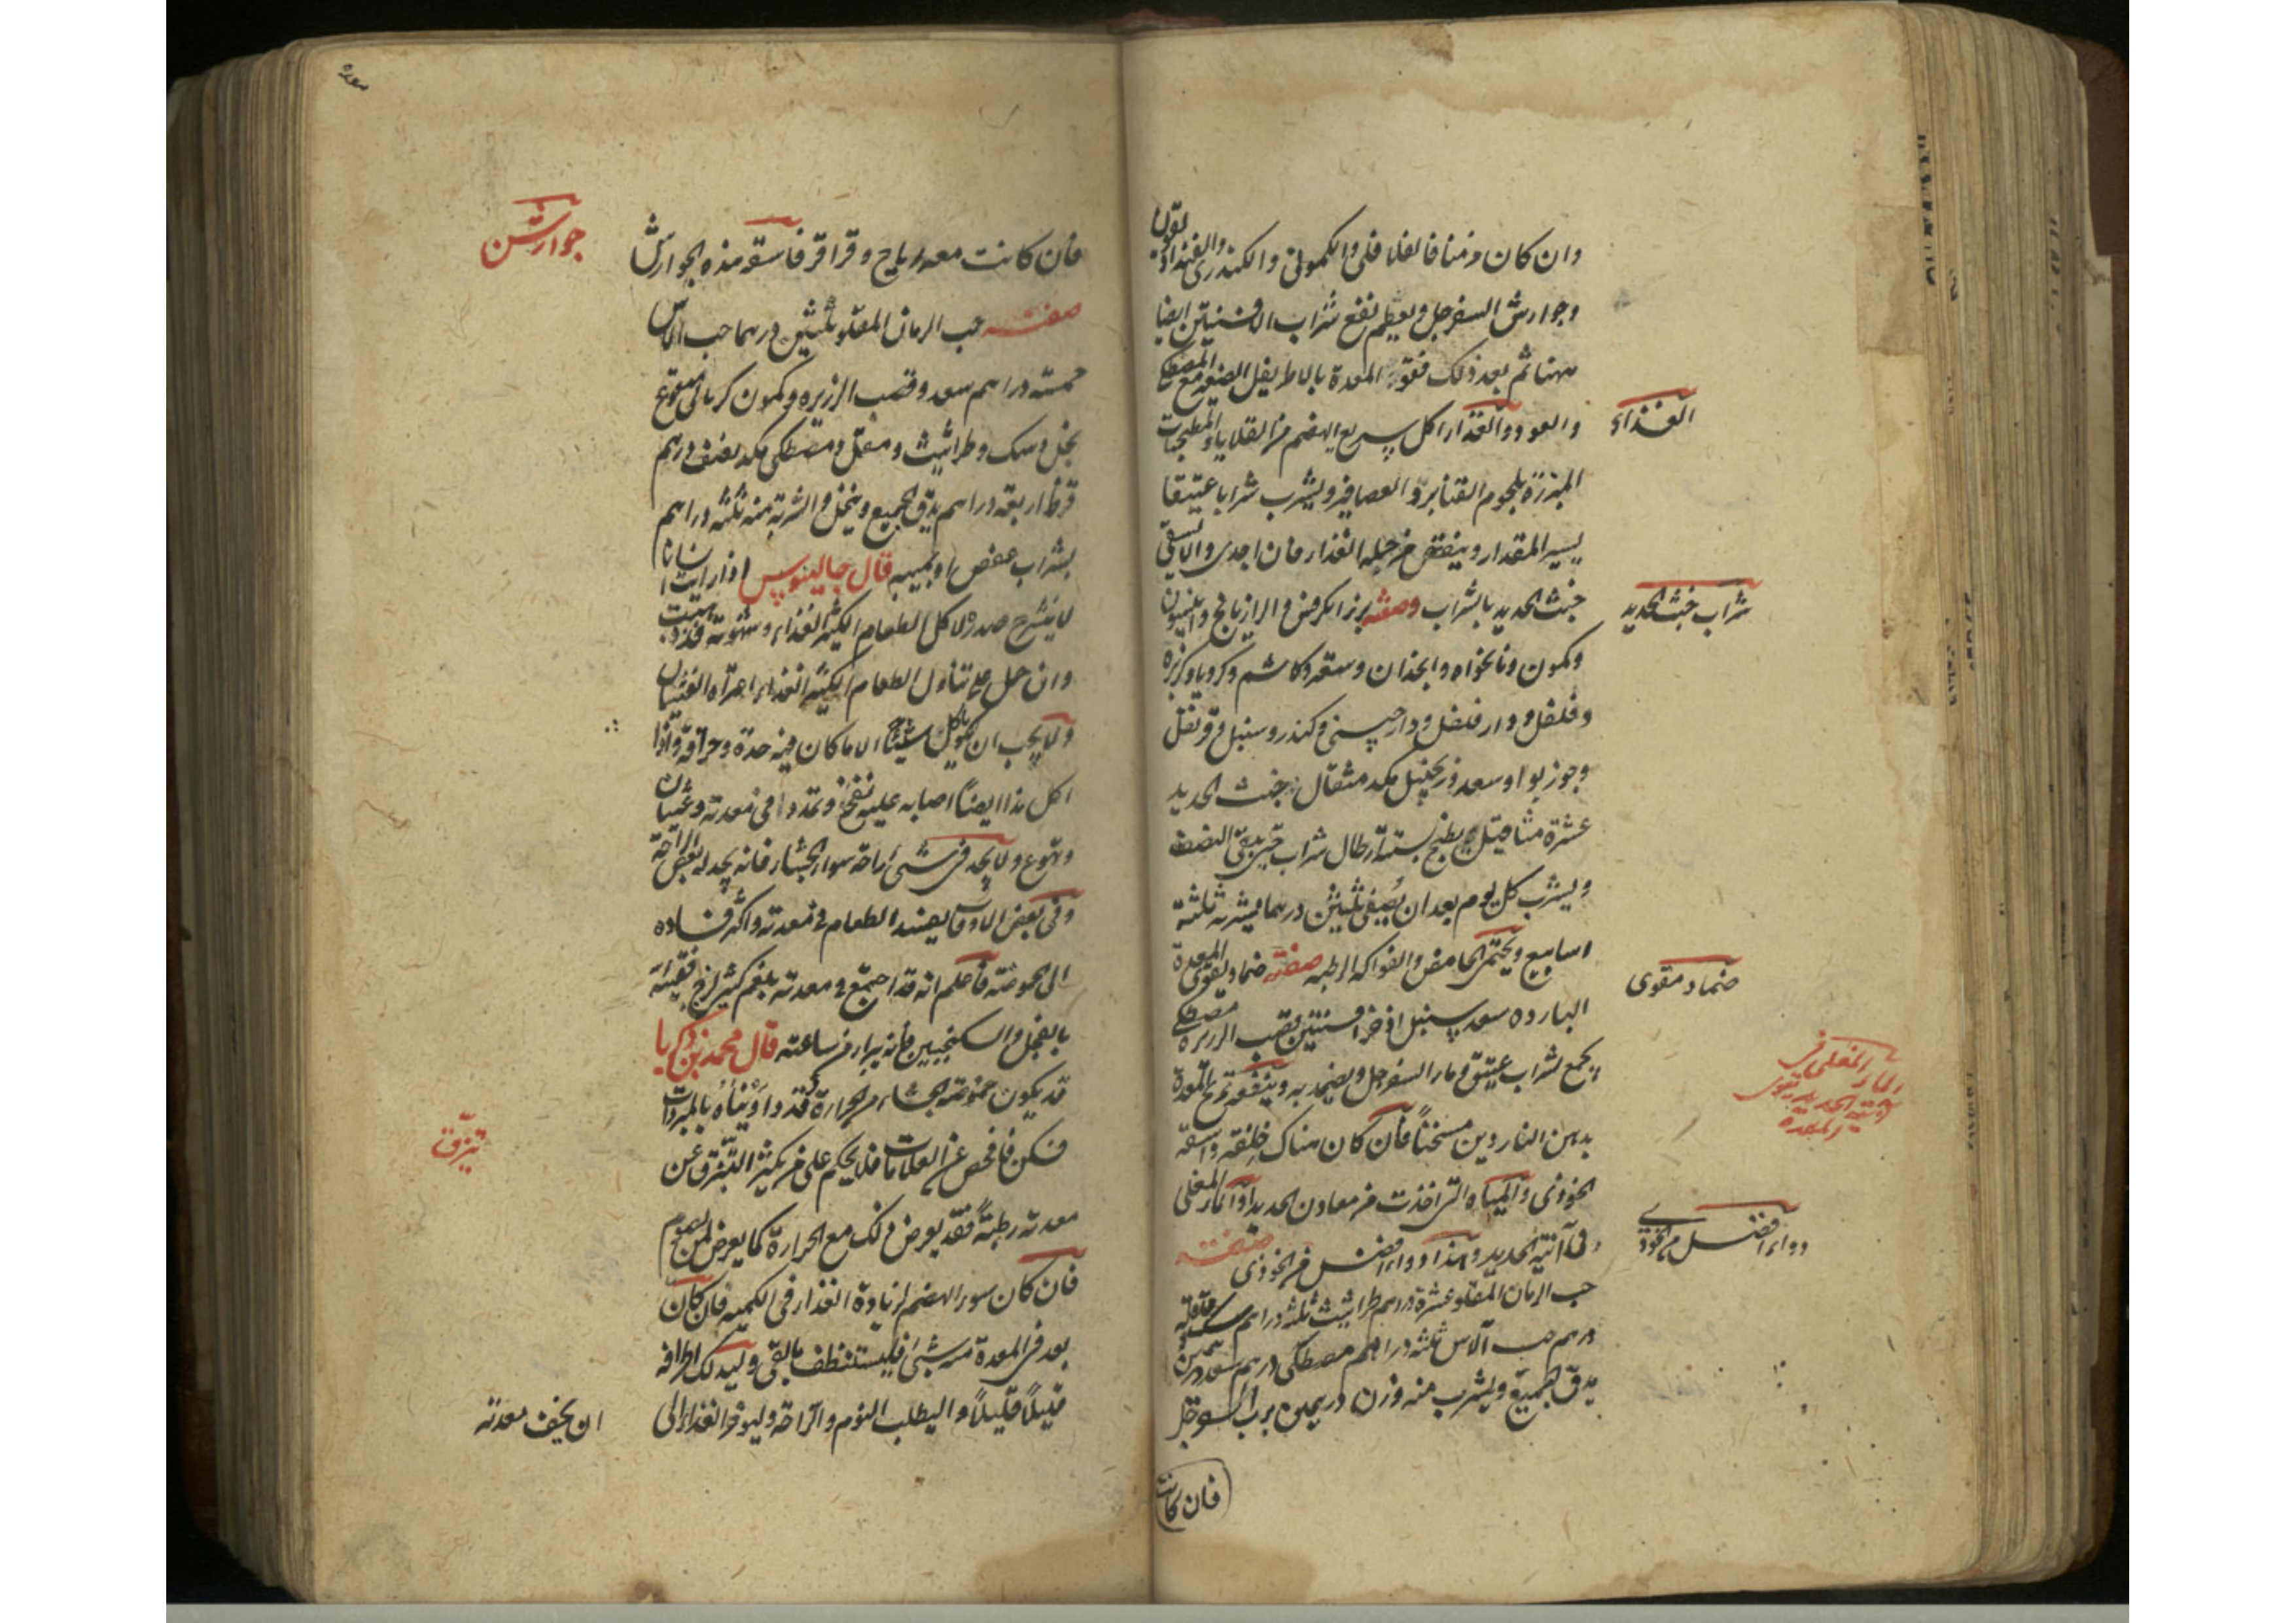 وان كان مزمنا فالفلافلى والكمونى والكندرى والفنداديقون
وجوارش السفرجل ويعظم نفع شراب الافسنتين ايضا
ههنا ثم بعد ذلك فقو المعدة بالاطريفل الصغير مع المصطكى
والعود والغذاء كل سريع الهضم من القلايا والمطجنات
الغذاء
المبزرة بلحوم القنابر والعصافير ويشرب شرابا عتيقا
يسير المقدار وينقص من جملة الغذاء فان اجدى والا يسقى
خبث الحديد بالشراب وصفته بزر الكرفس والرازيانج وانيسون
شراب خبث الحديد
وكمون ونانخواه وانجذان وسعتر وكاشم وكرويا وكزبره
وفلفل ودار فلفل ودارچينى وكندر وسنبل وقرنفل
وجوز بوا وسعد وزنجبيل مكد مثقال خبث الحديد
عشرة مثاقيل يطبخ بستة ارطال شراب حتى يبقى النصف
ويشرب كل يوم بعد ان يصفى ثلثين درهما يشربه ثلثة
اسابيع ويحتمى الحامض والفواكه الرطبه صفة ضماد يقوى المعدة
ضماد مقوى
البارده سعد سنبل اذخر افسنتين قصب الزريره مصطكى
يجمع بشراب عتيق وماء السفرجل ويضمد به وينفعه تمريخ المعدة
الماء المغلى فى
آنية الحديد يقوى
المعدة
بدهن الناردين مسخنا فان كان هناك خلفة واسقه
الخوزى والمياه التى اخذت من معادن الحديد او الماء المغلى
فى آنية الحديد وهذا دواء افضل من الخوزى صفته
دواء افضل من الخوزى
حب الرمان المقلو عشرة دراهم طراثيث ثلثه دراهم سك قاقله
درهم حب الآس ثلثه دراهم مصطكى درهم سعد درهمين
يدق الجميع ويشرب منه وزن درهمين برب السفرجل
فان كانت
فان كانت معه رياح وقراقر فاسقه هذه الجوارش
جوارشن
صفته حب الرمان المقلو ثلثين درهما حب الآس
خمسة دراهم سعد وقصب الزريره وكمون كرمانى منقوع
بخل وسك وطراثيث ومقل ومصطكى مكد نصف درهم
قرظ اربعة دراهم يدق الجميع وينخل والشربة منه ثلثه دراهم
بشراب عفص او بميبه قال جالينوس اذا رايت انسانا
لا ينشرح صدره لاكل الطعام الكثير الغذاء وشهوته قد ذهبت
وان حمل على تناول الطعام الكثير الغذاء اعتراه الغثيان
ولا يجب ان ياكل شيئا الا ما كان فيه حدة وحرافة واذا
اكل هذا ايضا اصابه عليه نفخ وتمدد فى معدته وغثيان
وتهوع ولا يجد فى شئ راحة سوى الجشاء فانه يجد له بعض الراحة
وفى بعض الاوقات يفسد الطعام فى معدته واكثر فساده
الى الحموضة فاعلم انه قد اجتمع فى معدته بلغم كثير لزج فقيئه
بالفجل والسكنجبين فانه يبرا من ساعته قال محمد بن زكريا
قد يكون حموضة الجشاء من الحرارة وقد داويناه بالمبردات
فسكن فافحص عن العلامات فلا يحكم على من يكثر التبزق عن
تبزق
معدته رطبة فقد يعرض ذلك مع الحرارة كما يعرض لمن يصوم
فان كان سوء الهضم لزيادة الغذاء فى الكميه فان كان
بعد فى المعدة منه شئ فليستنظف بالقئ وليدلك اطرافه
قليلا قليلا وليطلب النوم والراحة وليوخر الغذاء الى
ان يخف معدته